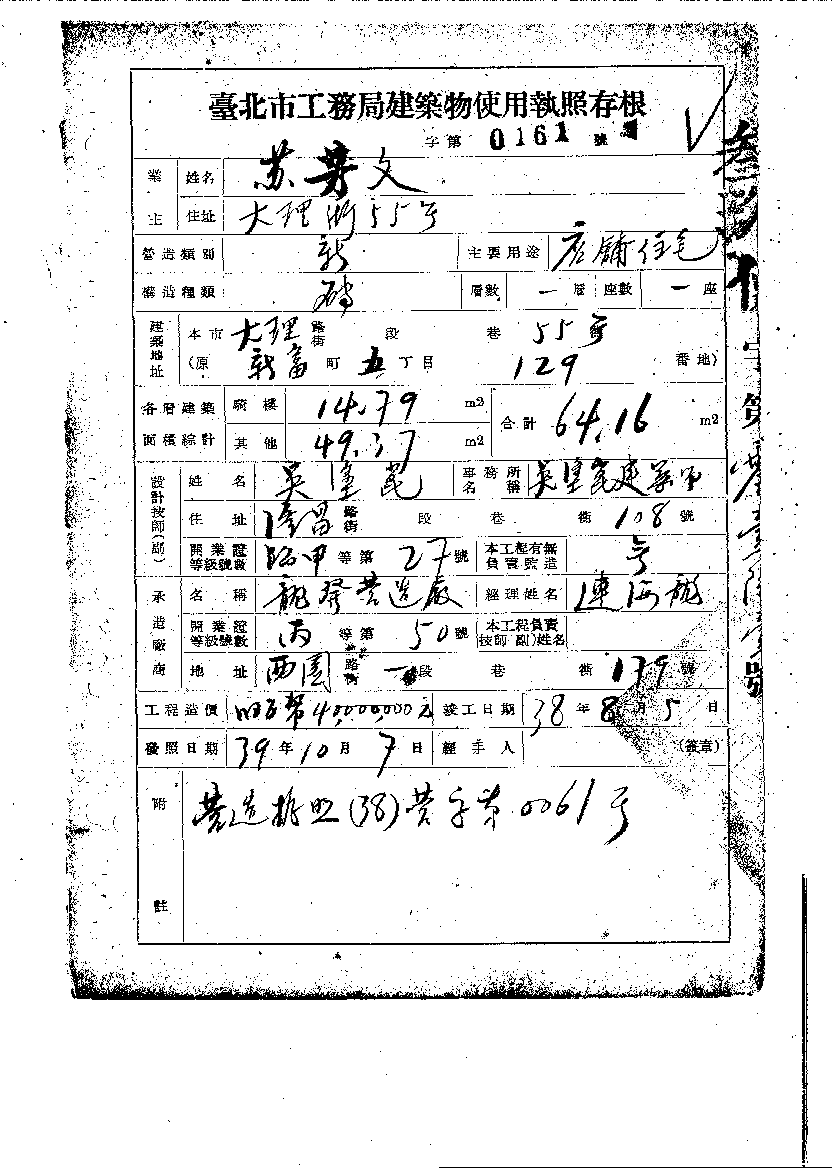 臺北市工務局建築物使用執照存根
字第 0161 號
業主 姓名 苏芳文
住址 大理街55号
營造類別 新 主要用途 店舖住宅
構造種類 磚 層數 一層 座數 一座
建築地址 本市 大理 路街 段 巷 55号
(原 新富 町 五 丁目 129 番地)
各層建築面積綜計 騎樓 14.79 m2 合計 64.16 m2
其他 49.37 m2
設計技師(副) 姓名 吳 事務所名稱 吳
住址 隆昌 路街 段 巷 衖 108 號
開業證等級號數 甲 等第 27 號 本工程有無負責監造
承造廠商 名稱 營造廠 經理姓名 連海
開業證等級號數 丙 等第 50 號 本工程負責技師(副)姓名
地址 西園 路街 一段 巷 衖 179 號
工程造價 40,000,000元 竣工日期 38年8月5日
發照日期 39年10月7日 經手人 (簽章)
附註 营造执照(38)营字第0061号